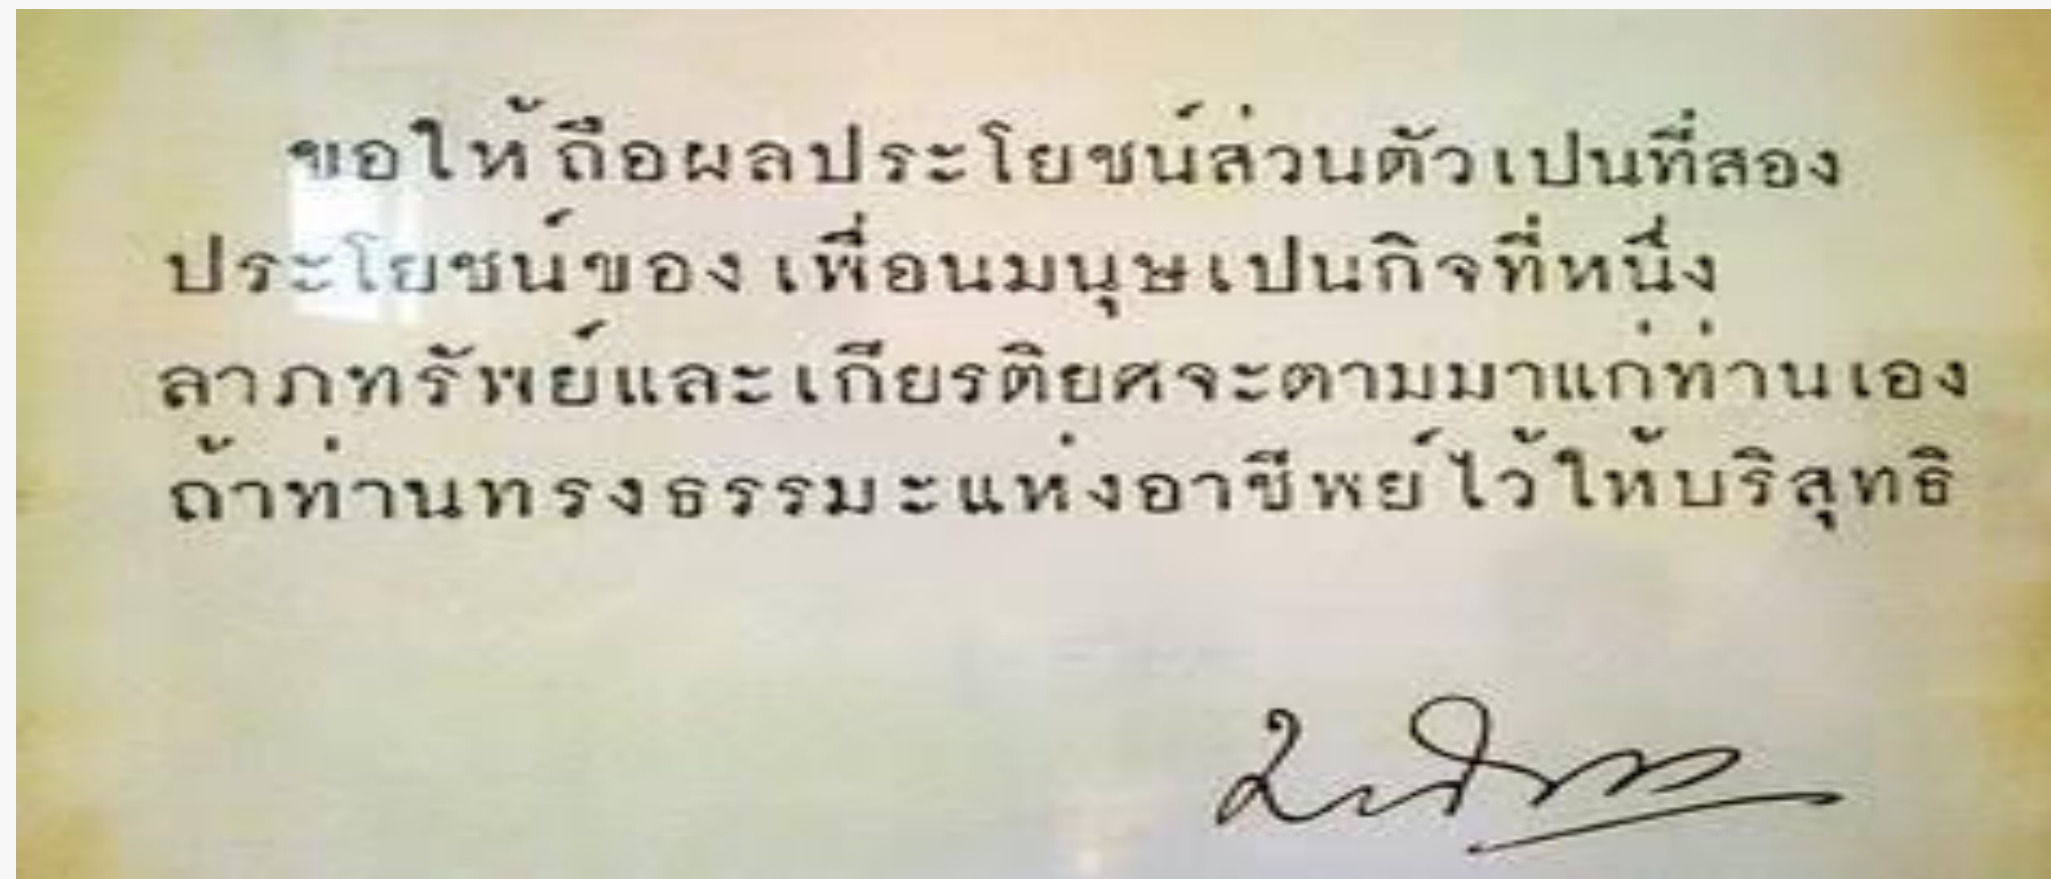 ขอให้ถือผลประโยชน์ส่วนตัวเปนที่สอง
ประโยชน์ของเพื่อนมนุษเปนกิจที่หนึ่ง
ลาภทรัพย์และเกียรติยศจะตามมาแก่ท่านเอง
ถ้าท่านทรงธรรมะแห่งอาชีพย์ไว้ให้บริสุทธิ